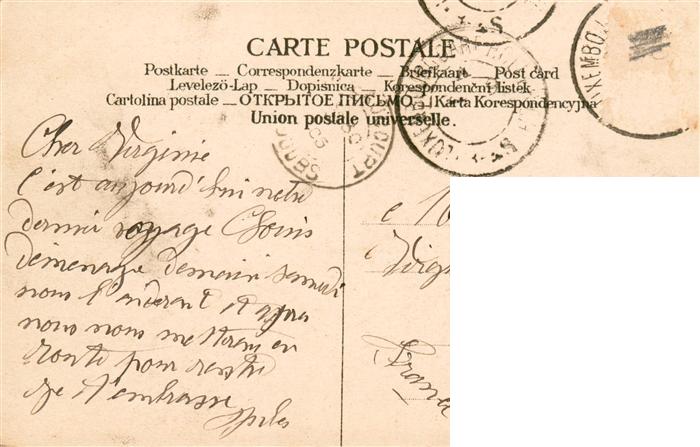 CARTE POSTALE
Postkarte — Correspondenzkarte — Briefkaart — Post card
Levelező-Lap — Dopisnica — Korespondenční lístek
Cartolina postale — ОТКРЫТОЕ ПИСЬМО — Karta Korespondencyjna
Union postale universelle.
LUXEMBO
Cher Virginie
C'est aujourd'hui notre
dernier voyage Louis
demenage demain samedi
nous l'aideront et apres
nous nous mettrons en
route pour
je t'embrasse
Jules
e
Virg
France